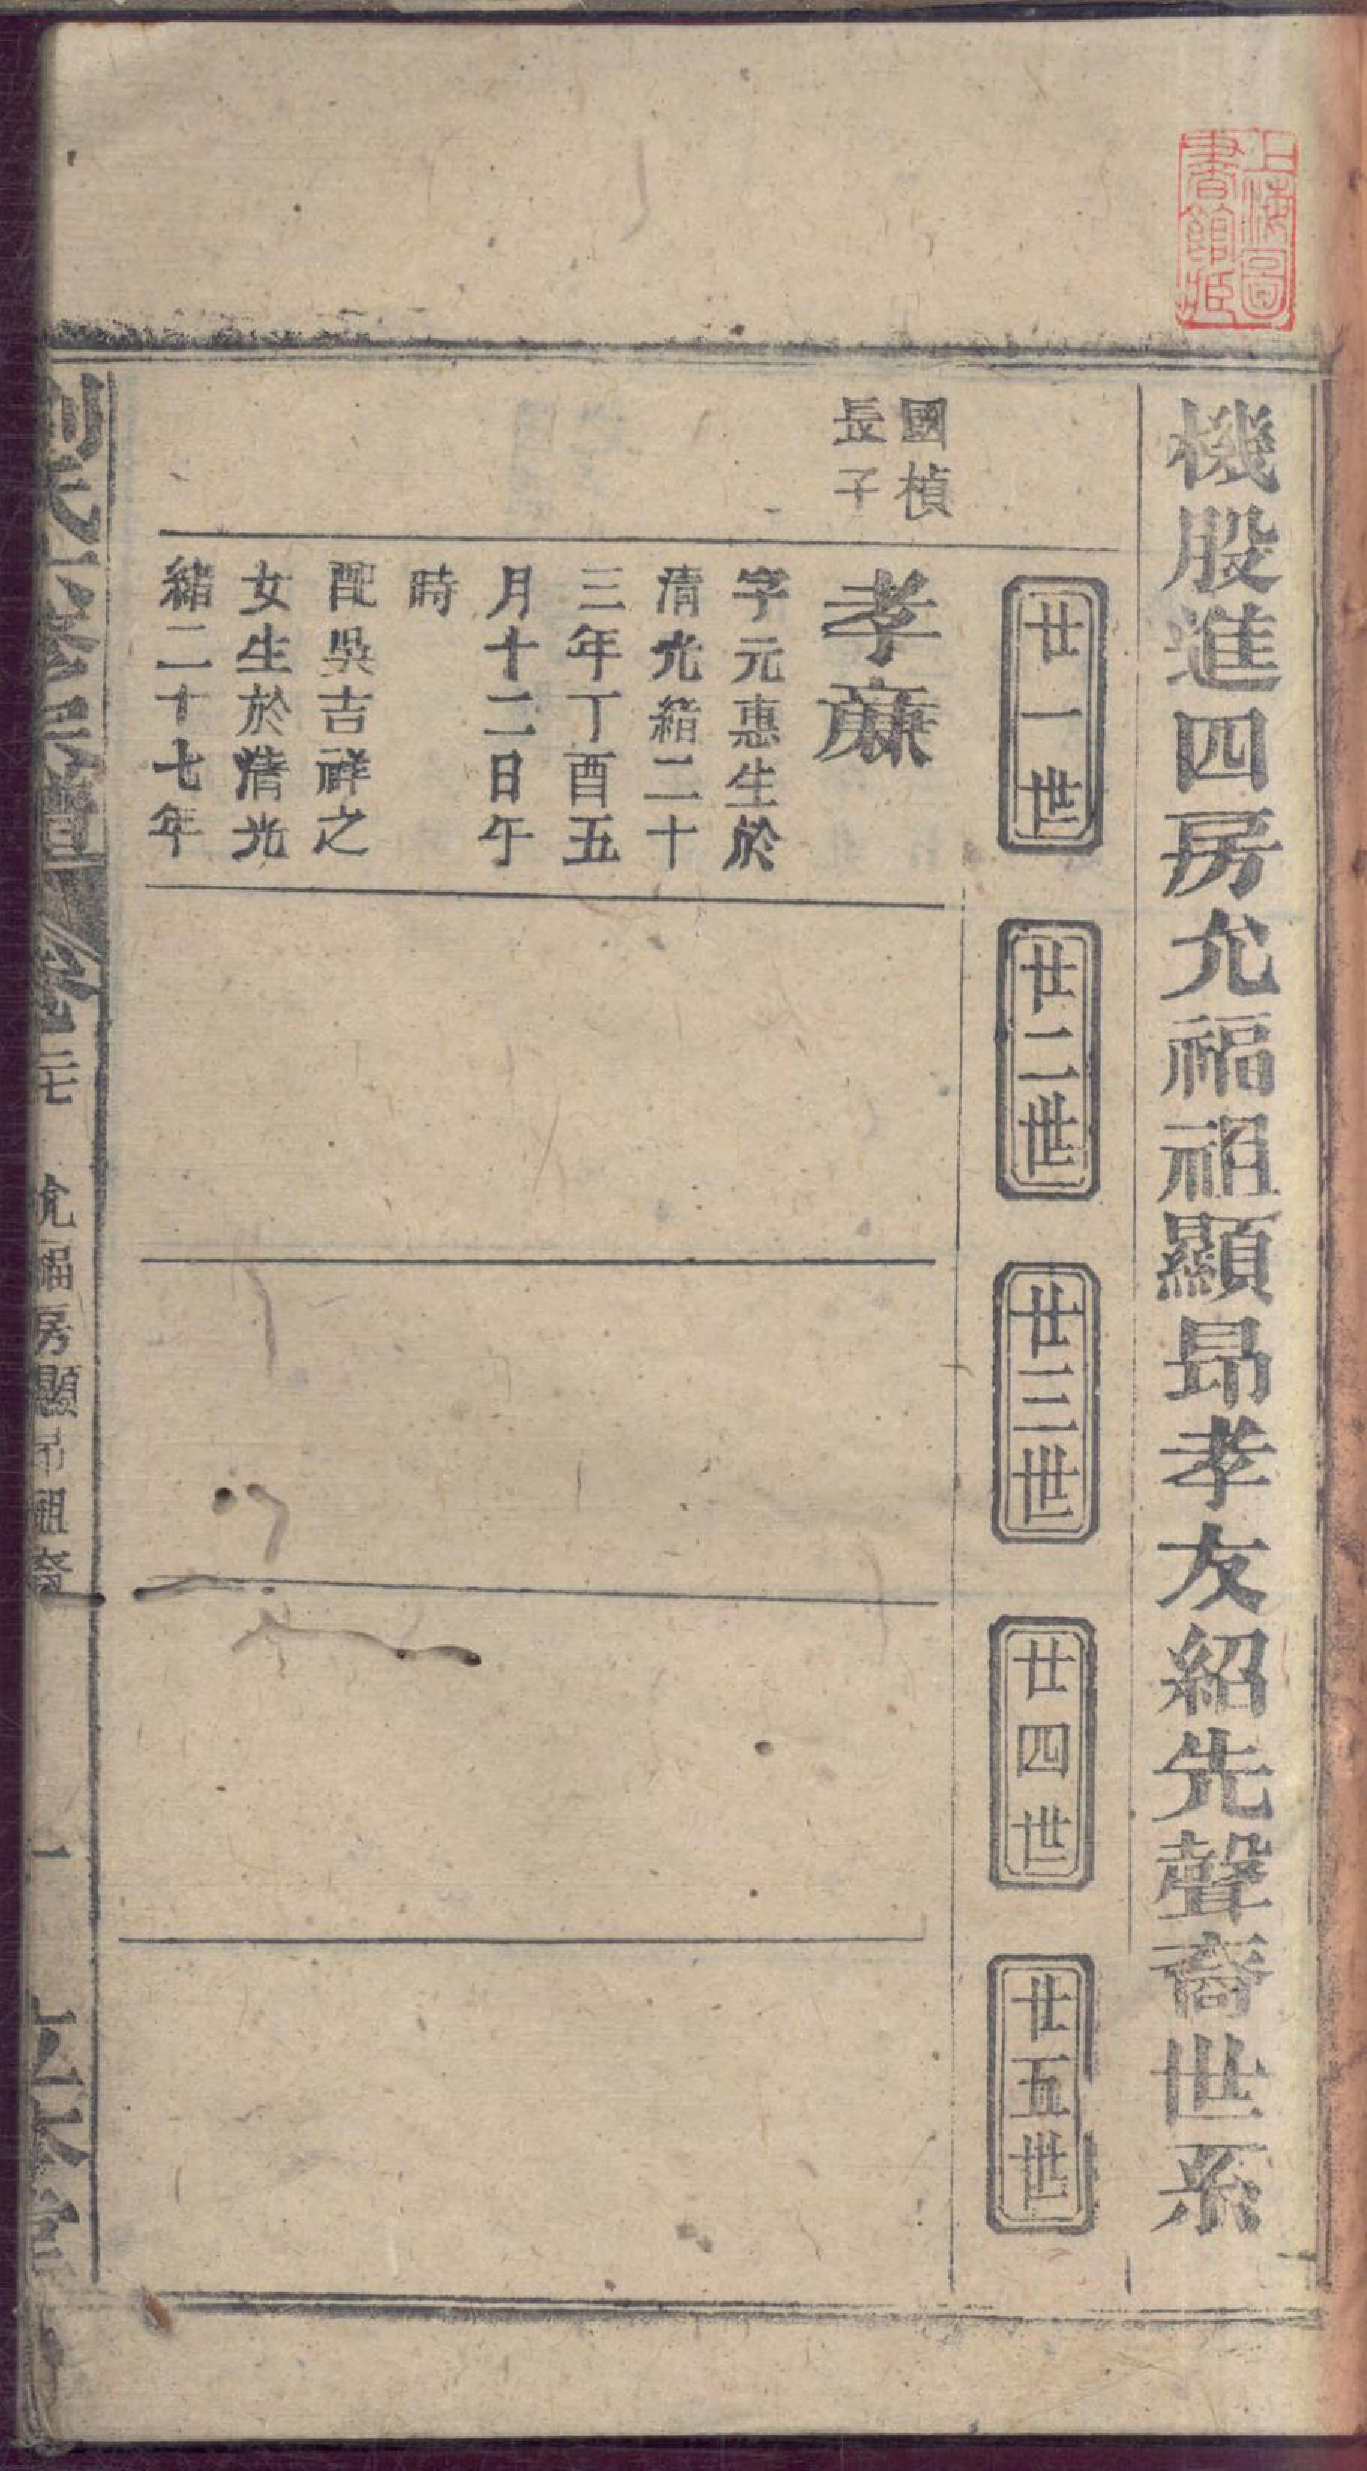 上海圖
書館藏
機股進四房允福祖顯昂孝友紹先聲裔世系
廿一世
廿二世
廿三世
廿四世
廿五世
國楨
長子
孝亷
字元惠生於
清光緒二十
三年丁酉五
月十二日午
時
配吳吉祥之
女生於清光
緒二十七年
允福房顯昂祖裔
一